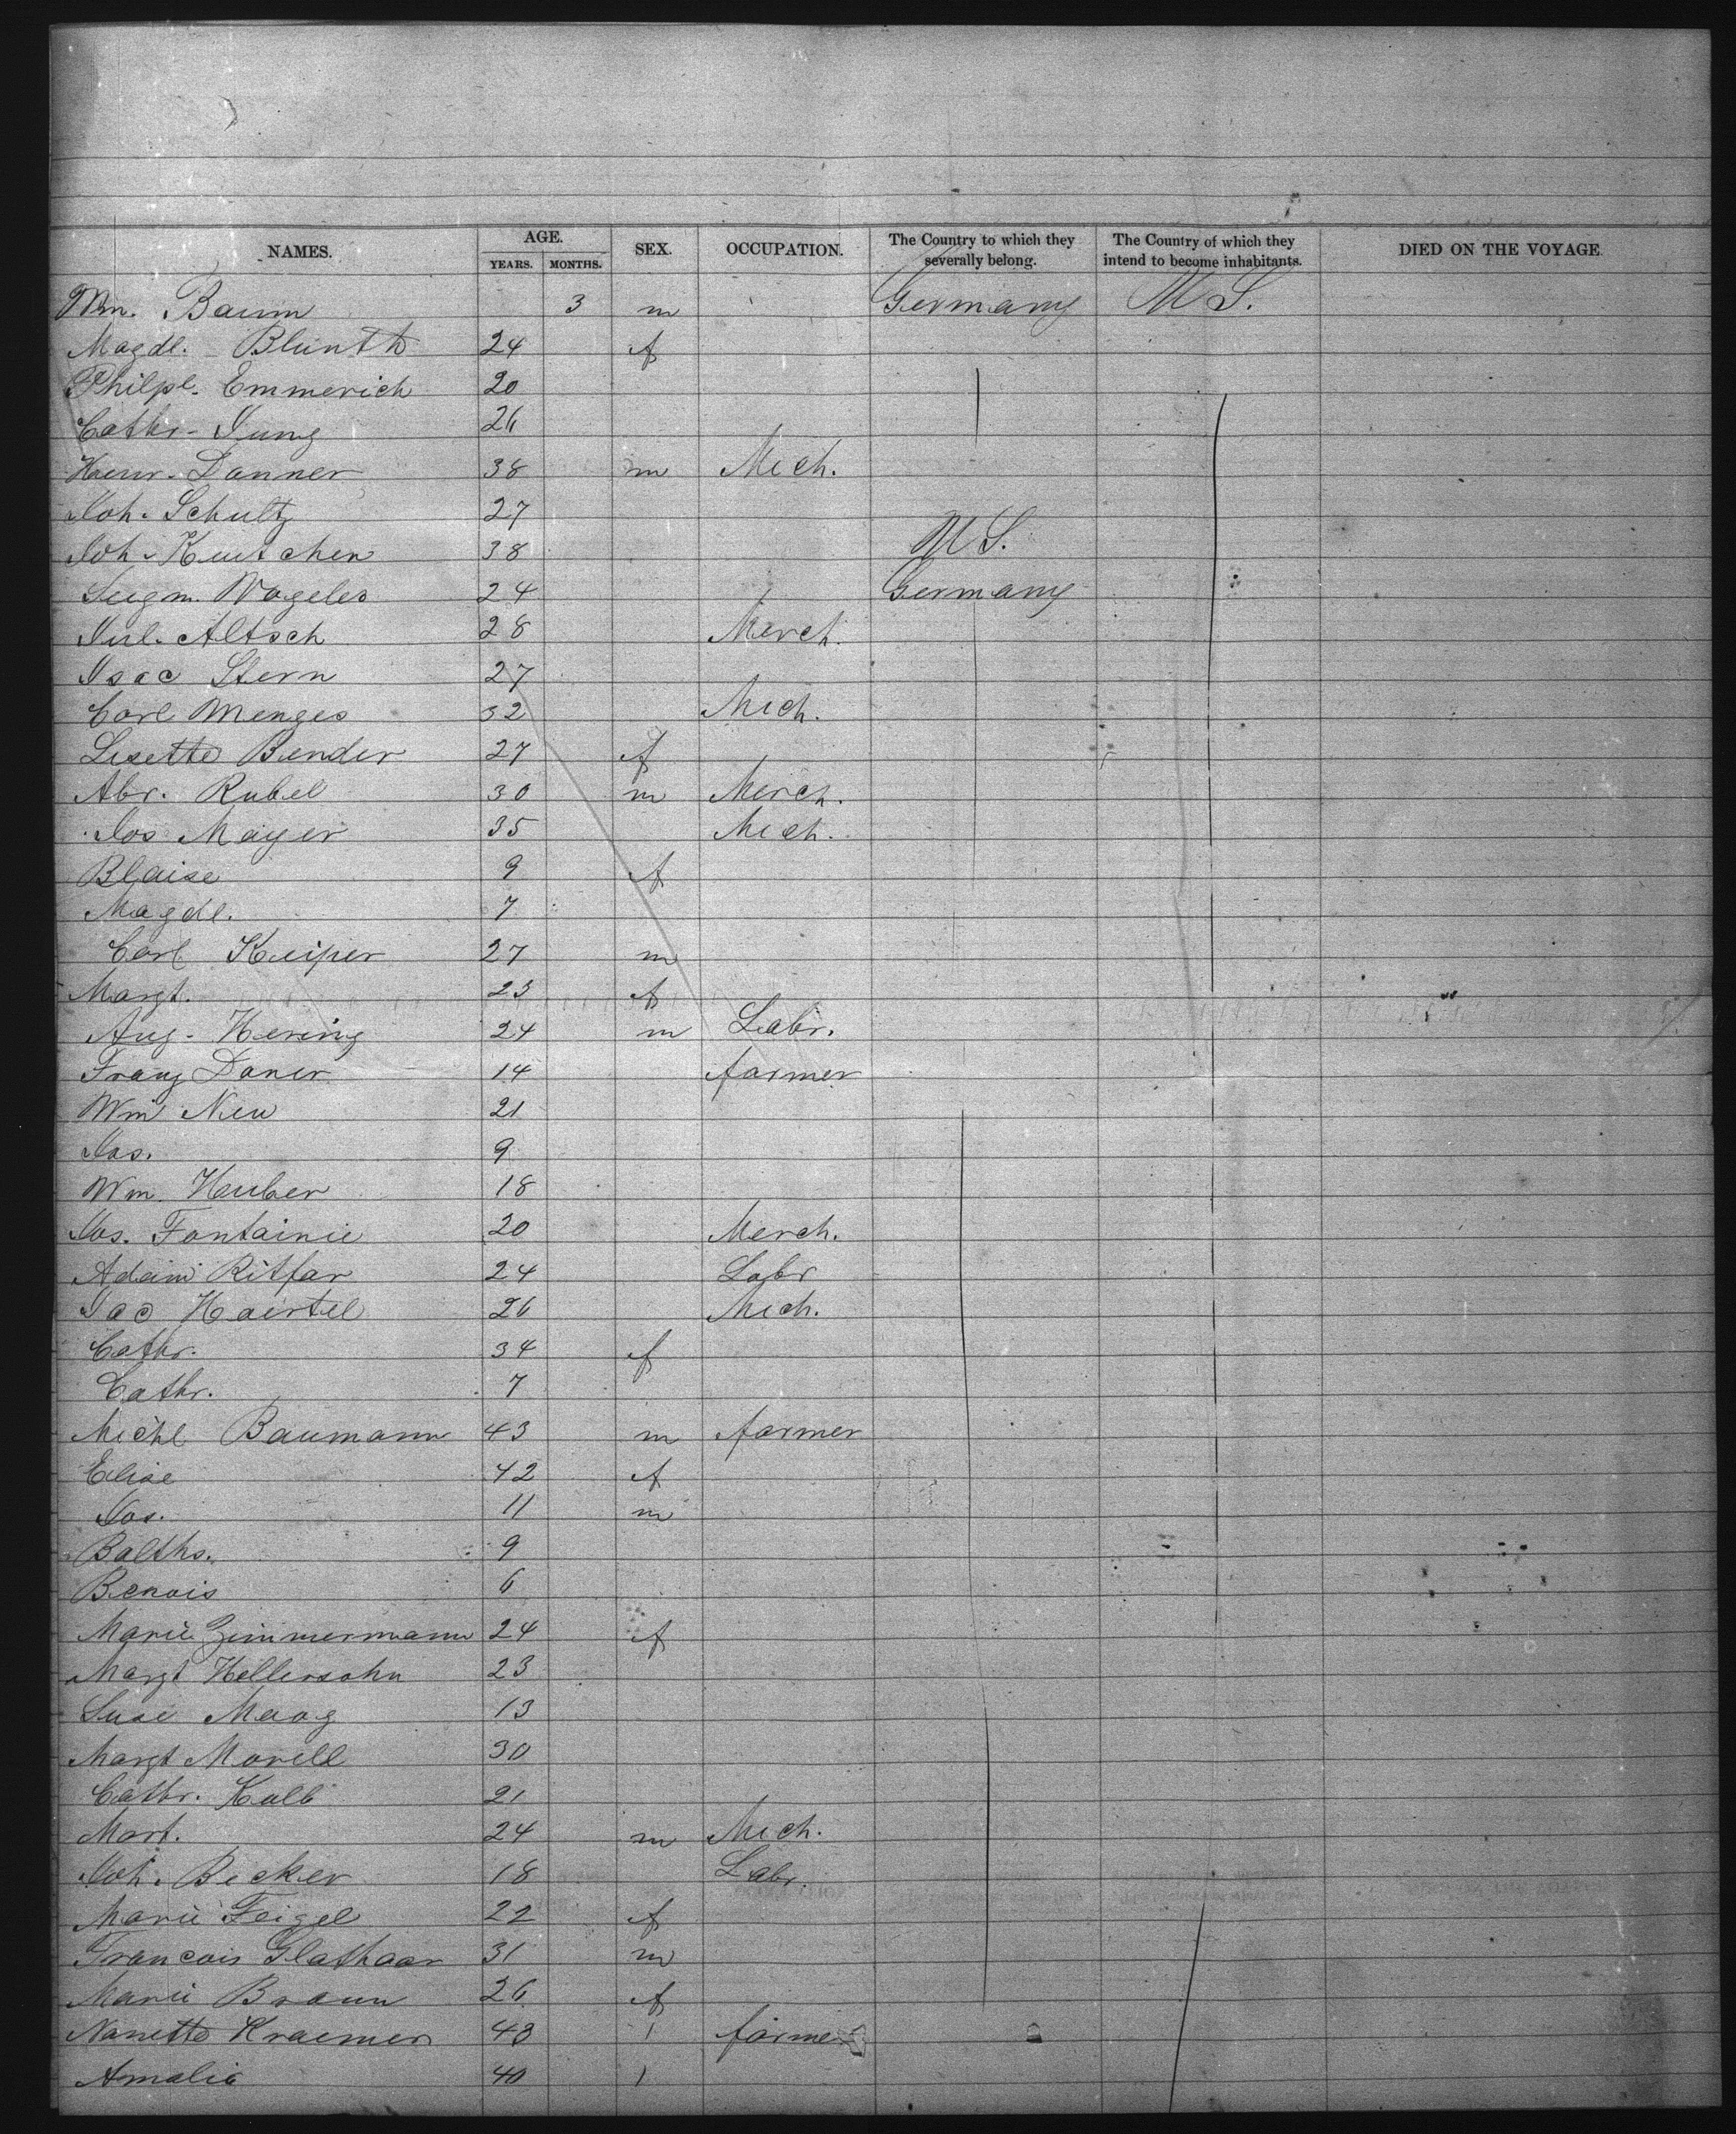 NAMES. AGE. YEARS. MONTHS. SEX. OCCUPATION. The Country to which they severally belong. The Country of which they intend to become inhabitants. DIED ON THE VOYAGE.
Wm. Baum 3 m Germany U S.
Magdl. Blunth 24 f
Philpl. Emmerich 20
Cathr. Jung 26
Heinr. Danner 38 m Mech.
Joh. Schultz 27
Joh. Kutschen 38 U S.
Siegm. Wageles 24 Germany
Jul. Altsch 28 Merch.
Isac Stern 27
Carl Menges 32 Mech.
Lisette Bender 27 f
Abr. Rubel 30 m Merch.
Jos Mayer 35 Mech.
Blaise 9 f
Magdl. 7
Carl Keiper 27 m
Margt. 23 f
Aug. Hering 24 m Labr.
Franz Daner 14 farmer
Wm Neu 21
Jas. 9
Wm. Huber 18
Jos. Fontainie 20 Merch.
Adam Ritfar 24 Labr
Jac Haertel 26 Mech.
Cathr. 34 f
Cathr. 7
Michl Baumann 43 m farmer
Elise 42 f
Jos. 11 m
Balths. 9
Benois 6
Marie Zimmermann 24 f
Margt Hellersohn 23
Susi Maag 13
Margt Morell 30
Cathr. Kolb 21
Mart. 24 m Mech.
Joh. Becker 18 Labr.
Marie Feigel 22 f
Francois Glathaar 31 m
Marie Braun 26 f
Nanette Kraemer 43 farmer
Amalia 40